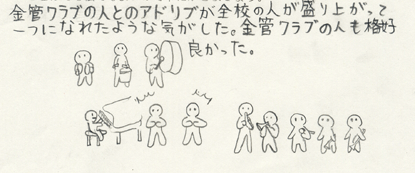 金管クラブの人とのアドリブが全校の人が盛り上がって
一つになれたような気がした。金管クラブの人も格好
良かった。